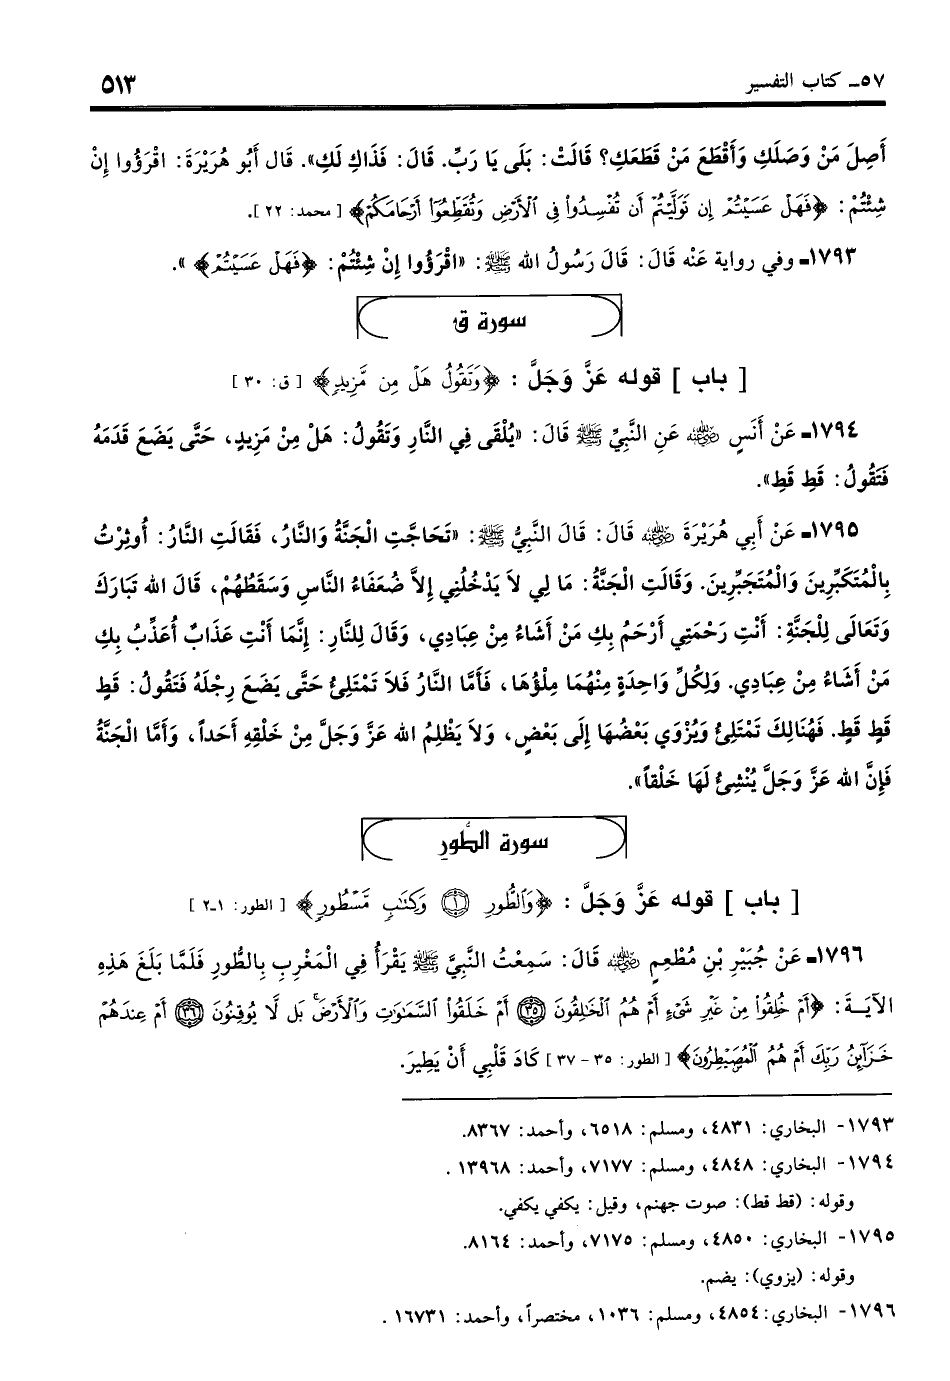 ٥٧ـ كتاب التفسير ٥١٣
أَصِلَ مَنْ وَصَلَكِ وَأَقْطَعَ مَنْ قَطَعَكِ؟ قَالَتْ: بَلَى يَا رَبِّ. قَالَ: فَذَاكِ لَكِ». قَال أَبُو هُرَيْرَةَ: اقْرَؤُوا إِنْ
شِئْتُمْ: ﴿فَهَلْ عَسَيْتُمْ إِن تَوَلَّيْتُمْ أَن تُفْسِدُوا۟ فِى ٱلْأَرْضِ وَتُقَطِّعُوٓا۟ أَرْحَامَكُمْ﴾ [محمد: ٢٢].
١٧٩٣ـ وفي رواية عَنْه قَالَ: قَالَ رَسُولُ الله ﷺ: «اقْرَؤُوا إِنْ شِئْتُمْ: ﴿فَهَلْ عَسَيْتُمْ﴾ ».
سورة ق
[ باب ] قوله عَزَّ وَجَلَّ : ﴿وَتَقُولُ هَلْ مِن مَّزِيدٍ﴾ [ ق: ٣٠ ]
١٧٩٤ـ عَنْ أَنَسٍ رضي الله عنه عَنِ النَّبِيِّ ﷺ قَالَ: «يُلْقَى فِي النَّارِ وَتَقُولُ: هَلْ مِنْ مَزِيدٍ، حَتَّى يَضَعَ قَدَمَهُ
فَتَقُولُ: قَطِ قَطِ».
١٧٩٥ـ عَنْ أَبِي هُرَيْرَةَ رضي الله عنه قَالَ: قَالَ النَّبِيُّ ﷺ: «تَحَاجَّتِ الْجَنَّةُ وَالنَّارُ، فَقَالَتِ النَّارُ: أُوثِرْتُ
بِالْمُتَكَبِّرِينَ وَالْمُتَجَبِّرِينَ. وَقَالَتِ الْجَنَّةُ: مَا لِي لاَ يَدْخُلُنِي إِلاَّ ضُعَفَاءُ النَّاسِ وَسَقَطُهُمْ، قَالَ الله تَبَارَكَ
وَتَعَالَى لِلْجَنَّةِ: أَنْتِ رَحْمَتِي أَرْحَمُ بِكِ مَنْ أَشَاءُ مِنْ عِبَادِي، وَقَالَ لِلنَّارِ: إِنَّمَا أَنْتِ عَذَابٌ أُعَذِّبُ بِكِ
مَنْ أَشَاءُ مِنْ عِبَادِي. وَلِكُلِّ وَاحِدَةٍ مِنْهُمَا مِلْؤُهَا، فَأَمَّا النَّارُ فَلاَ تَمْتَلِئُ حَتَّى يَضَعَ رِجْلَهُ فَتَقُولُ: قَطٍ
قَطٍ قَطٍ. فَهُنَالِكَ تَمْتَلِئُ وَيُزْوَي بَعْضُهَا إِلَى بَعْضٍ، وَلاَ يَظْلِمُ الله عَزَّ وَجَلَّ مِنْ خَلْقِهِ أَحَداً، وَأَمَّا الْجَنَّةُ
فَإِنَّ الله عَزَّ وَجَلَّ يُنْشِئُ لَهَا خَلْقاً».
سورة الطُّورِ
[ باب ] قوله عَزَّ وَجَلَّ : ﴿وَٱلطُّورِ ١ وَكِتَـٰبٍ مَّسْطُورٍ﴾ [ الطور: ١ـ٢ ]
١٧٩٦ـ عَنْ جُبَيْرِ بْنِ مُطْعِمٍ رضي الله عنه قَالَ: سَمِعْتُ النَّبِيَّ ﷺ يَقْرَأُ فِي الْمَغْرِبِ بِالطُّورِ فَلَمَّا بَلَغَ هَذِهِ
الآيَـةَ: ﴿أَمْ خُلِقُوا۟ مِنْ غَيْرِ شَىْءٍ أَمْ هُمُ ٱلْخَـٰلِقُونَ ٣٥ أَمْ خَلَقُوا۟ ٱلسَّمَـٰوَٰتِ وَٱلْأَرْضَ ۚ بَل لَّا يُوقِنُونَ ٣٦ أَمْ عِندَهُمْ
خَزَآئِنُ رَبِّكَ أَمْ هُمُ ٱلْمُصَۣيْطِرُونَ﴾ [الطور: ٣٥ - ٣٧] كَادَ قَلْبِي أَنْ يَطِيرَ.
١٧٩٣- البخاري: ٤٨٣١، ومسلم: ٦٥١٨، وأحمد: ٨٣٦٧.
١٧٩٤- البخاري: ٤٨٤٨، ومسلم: ٧١٧٧، وأحمد: ١٣٩٦٨ .
وقوله: (قط قط): صوت جهنم، وقيل: يكفي يكفي.
١٧٩٥- البخاري: ٤٨٥٠، ومسلم: ٧١٧٥، وأحمد: ٨١٦٤.
وقوله: (يزوي): يضم.
١٧٩٦- البخاري: ٤٨٥٤، ومسلم: ١٠٣٦، مختصراً، وأحمد: ١٦٧٣١ .